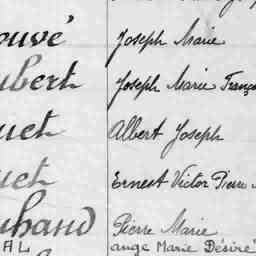 ouvé Joseph Marie
bert Joseph Marie Franço
uet Albert Joseph
uet Ernest Victor Pierre
uhaud Pierre Marie
AL ange Marie Désiré